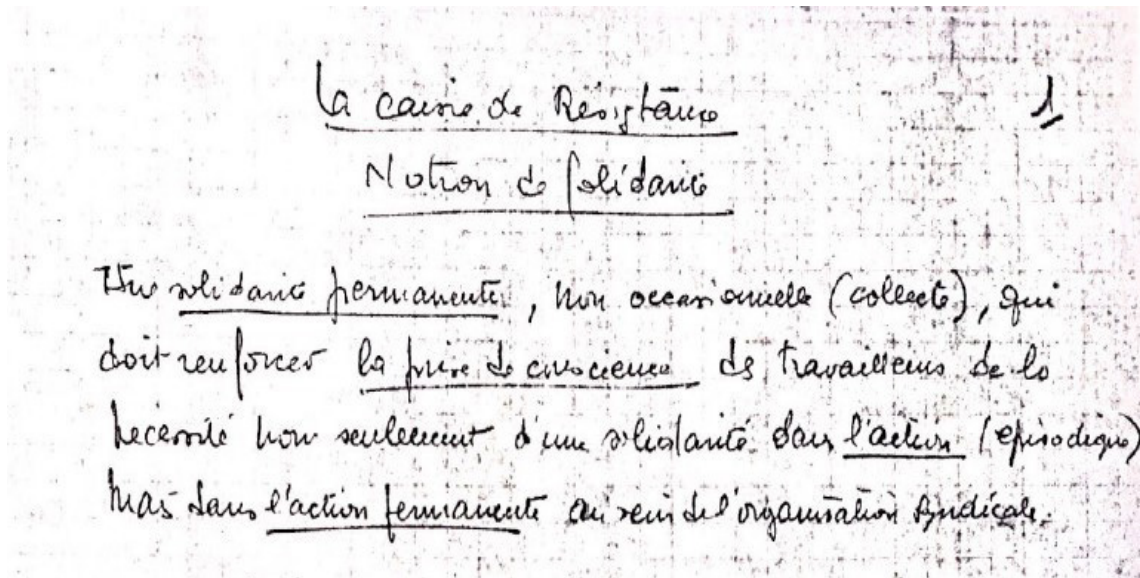 La caisse de Résistance
1
Notion de Solidarité
Une solidarité permanente, non occasionnelle (collecte), qui
doit renforcer la prise de conscience des travailleurs de la
nécessité non seulement d'une solidarité dans l'action (épisodique)
mais dans l'action permanente au sein de l'organisation syndicale.